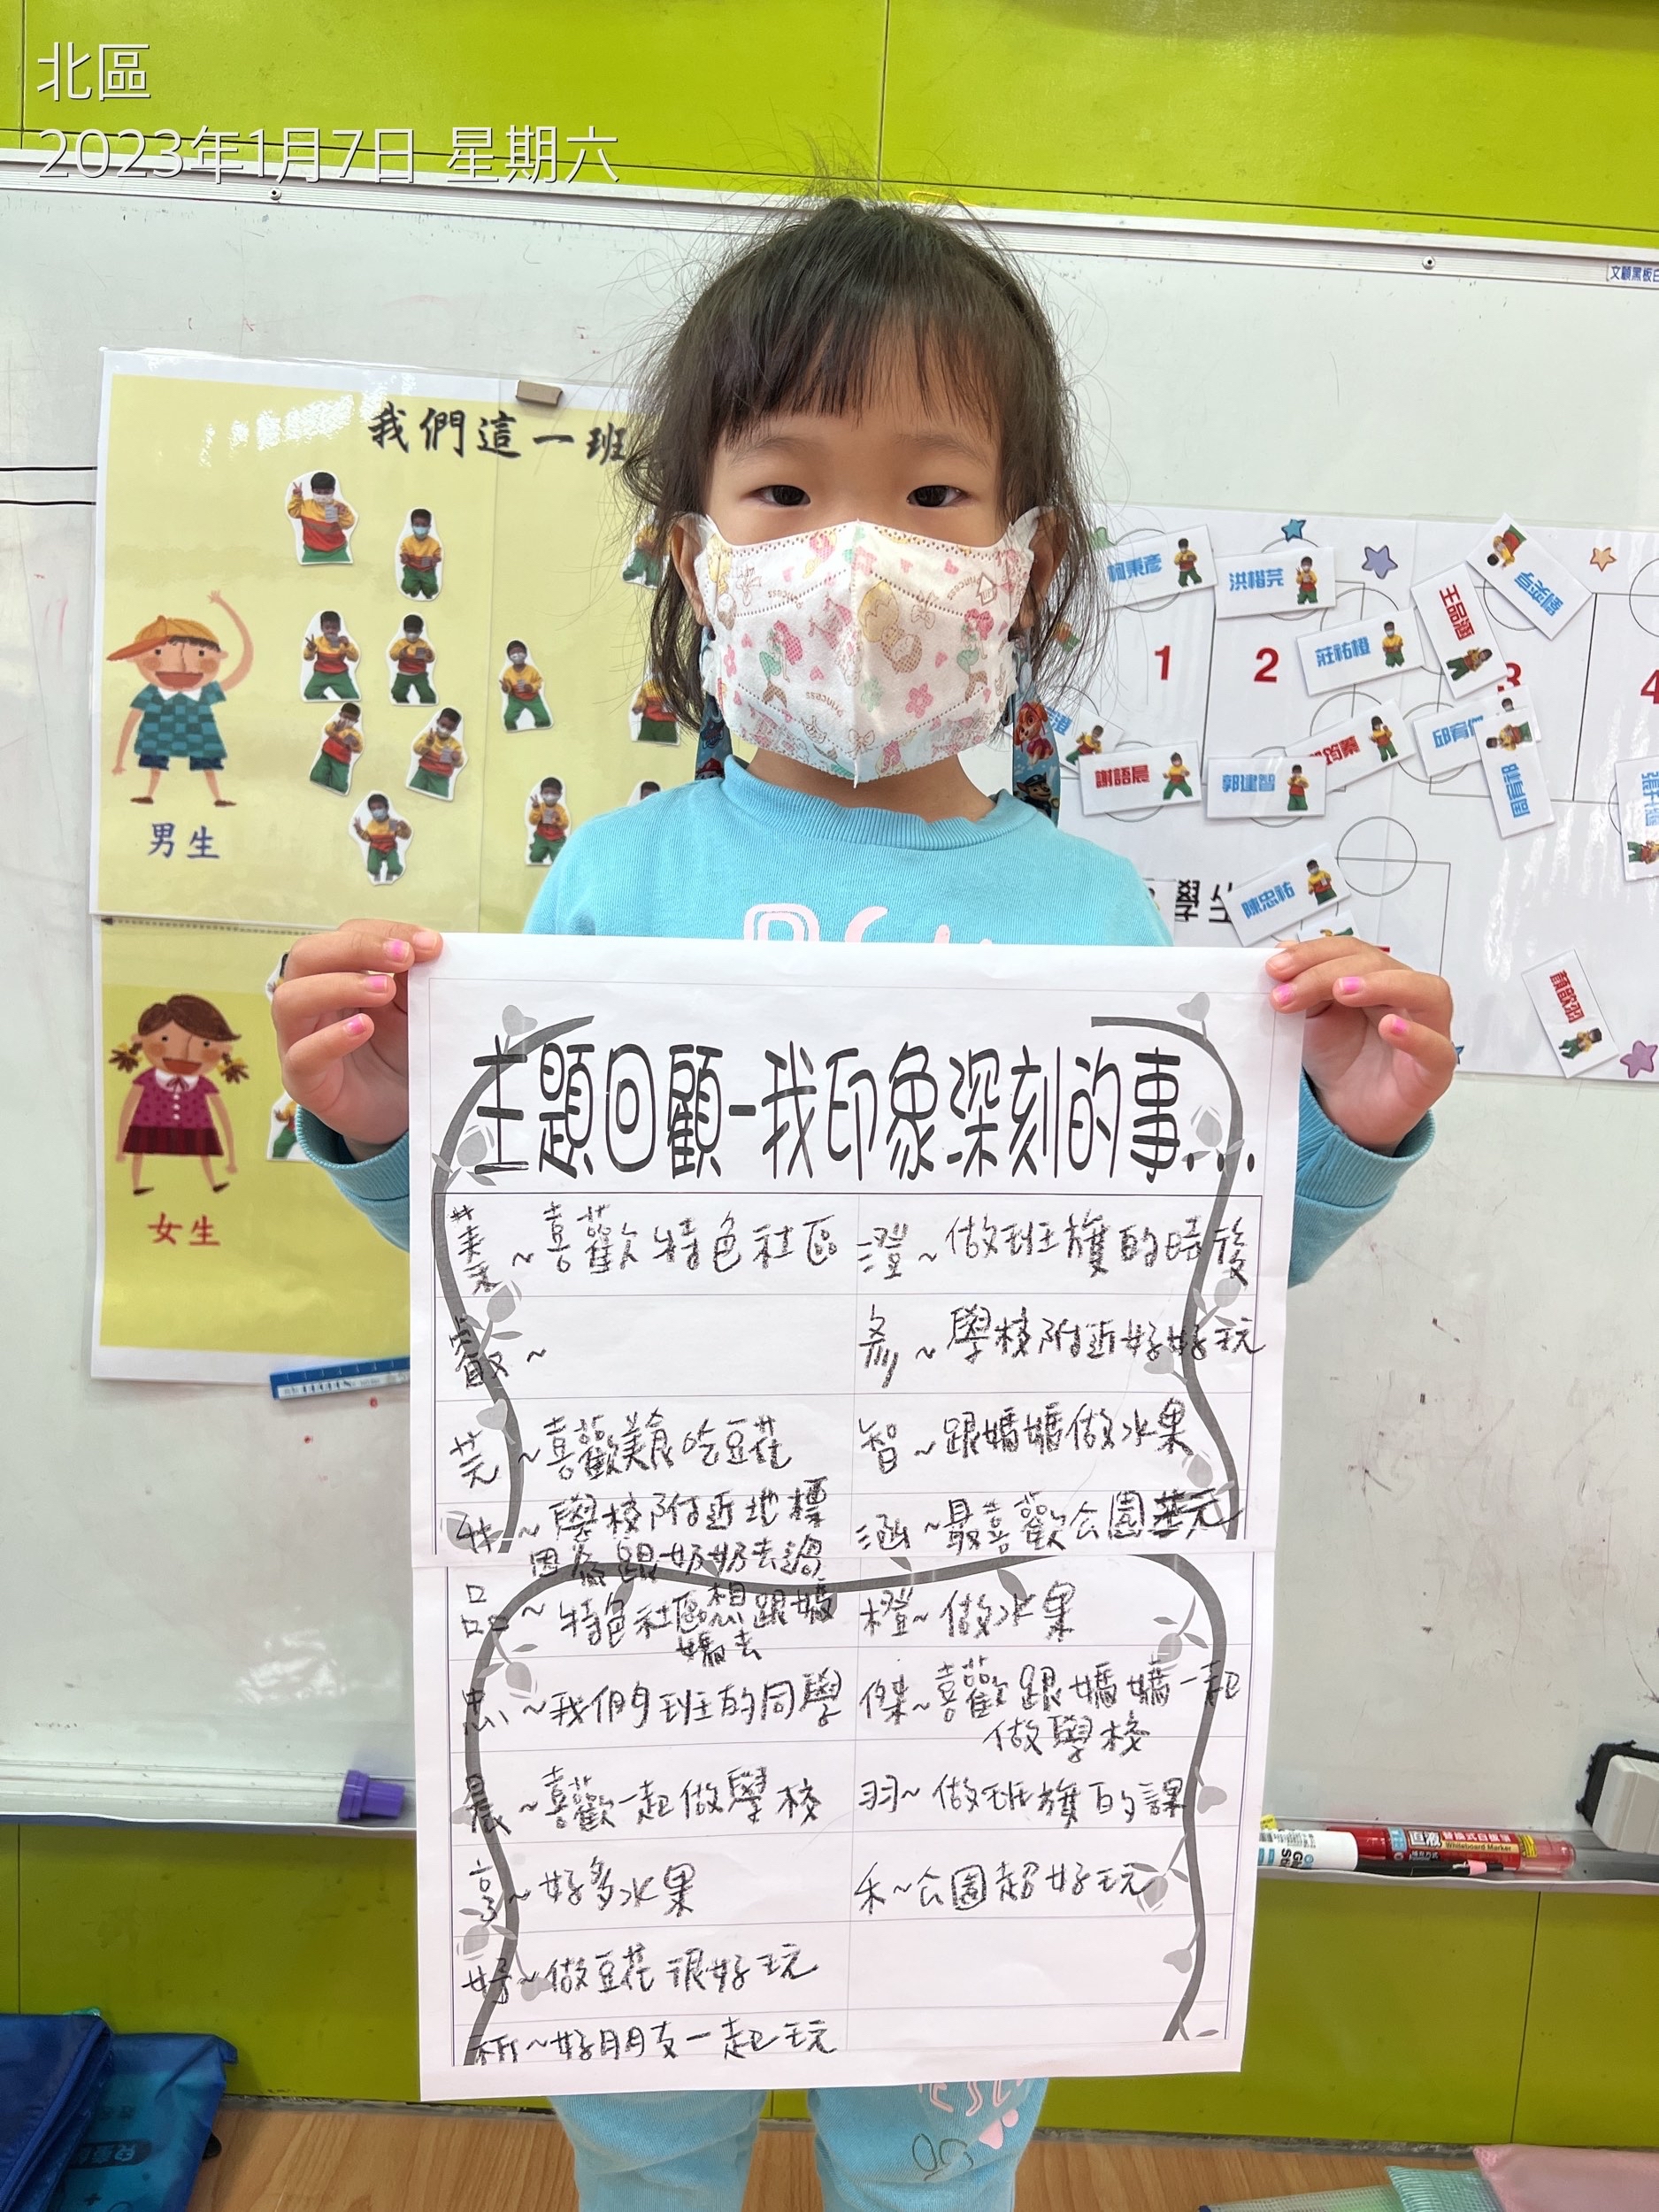 北區
2023年1月7日 星期六
文顧黑板
我們這一班
男生
女生
柯秉彥
洪楷芫
王品涵
莊祐橙
1
2
3
4
謝語晨
郭建智
陳忠祐
學生
主題回顧-我印象深刻的事...
蓁~喜歡特色社區
叡~
芫~喜歡美食吃豆花
~學校附近地標
因為跟奶奶去過
品~特色社區想跟媽
媽去
忠~我們班的同學
晨~喜歡一起做學校
享~好多水果
妤~做豆花很好玩
祈~好朋友一起玩
澄~做班旗的時後
彥~學校附近好好玩
智~跟媽媽做水果
涵~最喜歡公園
橙~做水果
傑~喜歡跟媽媽一起
做學校
羽~做班旗的課
禾~公園超好玩
Whiteboard Marker